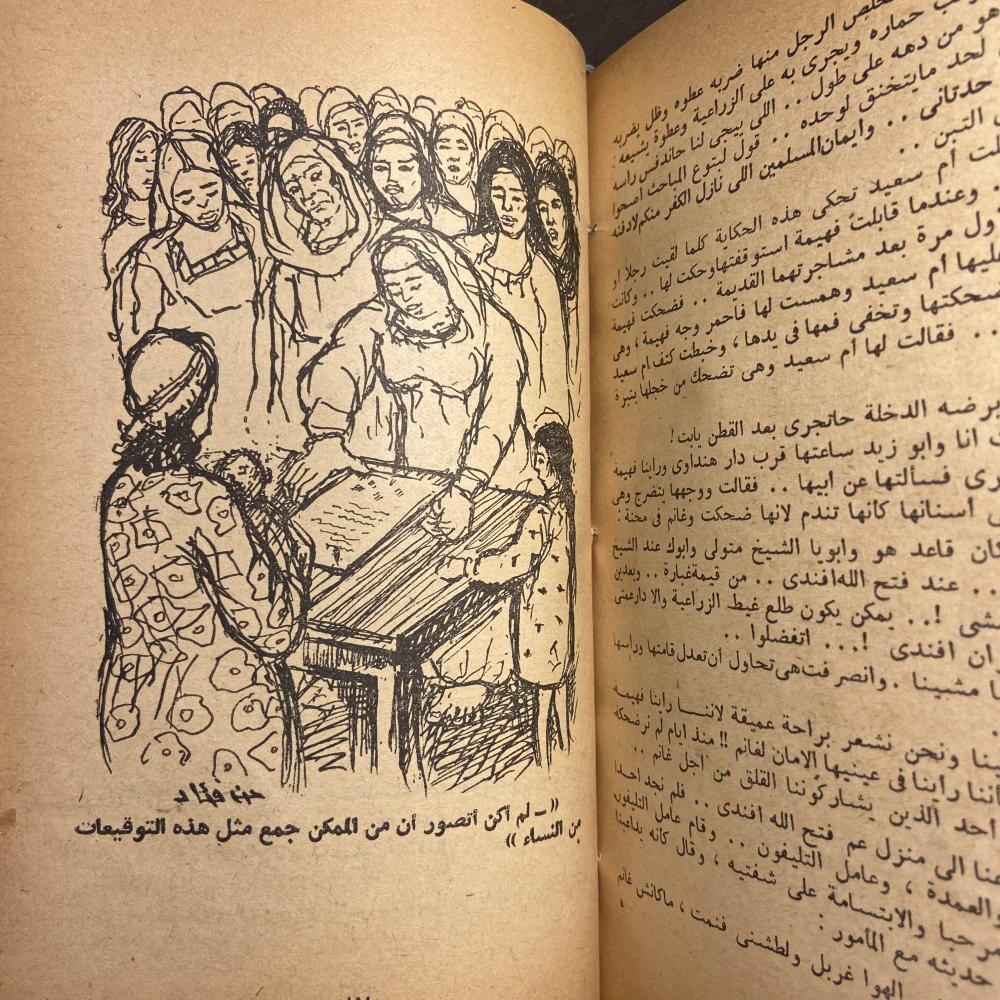 حسن فؤاد
« — لم أكن أتصور أن من الممكن جمع مثل هذه التوقيعات
من النساء »
الرجل منها ضربه عطوه وظل يضربه
حماره ويجرى به على الزراعية وعطوة يشيعه :
هو من دهه على طول .. اللى ييجى لنا حاندفس راسه
لحد مايتخنق لوحده .. قول لبتوع المباحث اصحوا
حدتانى .. وايمان المسلمين اللى نازل الكفر منكم لادفنه
التبن ..
أم سعيد تحكى هذه الحكاية كلما لقيت رجلا أو
وعندما قابلت فهيمة استوقفتها وحكت لها .. وكانت
ول مرة بعد مشاجرتهما القديمة .. فضحكت فهيمة
عليها أم سعيد وهمست لها فاحمر وجه فهيمة ، وهى
ضحكتها وتخفى فمها فى يدها ، وخبطت كتف أم سعيد
.. فقالت لها أم سعيد وهى تضحك من خجلها بنبرة
برضه الدخلة حاتجرى بعد القطن يابت !
انا وابو زيد ساعتها قرب دار هنداوى وراينا فهيمة
رى فسألتها عن ابيها .. فقالت ووجهها يتضرج وهى
أسنانها كأنها تندم لانها ضحكت وغانم فى محنة :
كان قاعد هو وابويا الشيخ متولى وابوك عند الشيخ
.. عند فتح الله افندى .. من قيمة غبارة .. وبعدين
مشى !.. يمكن يكون طلع غيط الزراعية والا دار عمى
ان افندى !... اتفضلوا ..
مشينا . وانصرفت هى تحاول أن تعدل قامتها وراسها
ينا ونحن نشعر براحة عميقة لاننا راينا فهيمة
أننا راينا فى عينيها الامان لغانم !! منذ ايام لم نر ضحكه
احد الذين يشاركوننا القلق من أجل غانم ..
عنا الى منزل عم فتح الله افندى .. فلم نجد احدا
والعمدة ، وعامل التليفون .. وقام عامل التليفون
مرحبا والابتسامة على شفتيه ، وقال كأنه يداعبنا
حديثه مع المأمور :
الهوا غربل ولطشنى فنمت ، ماكانش غانم